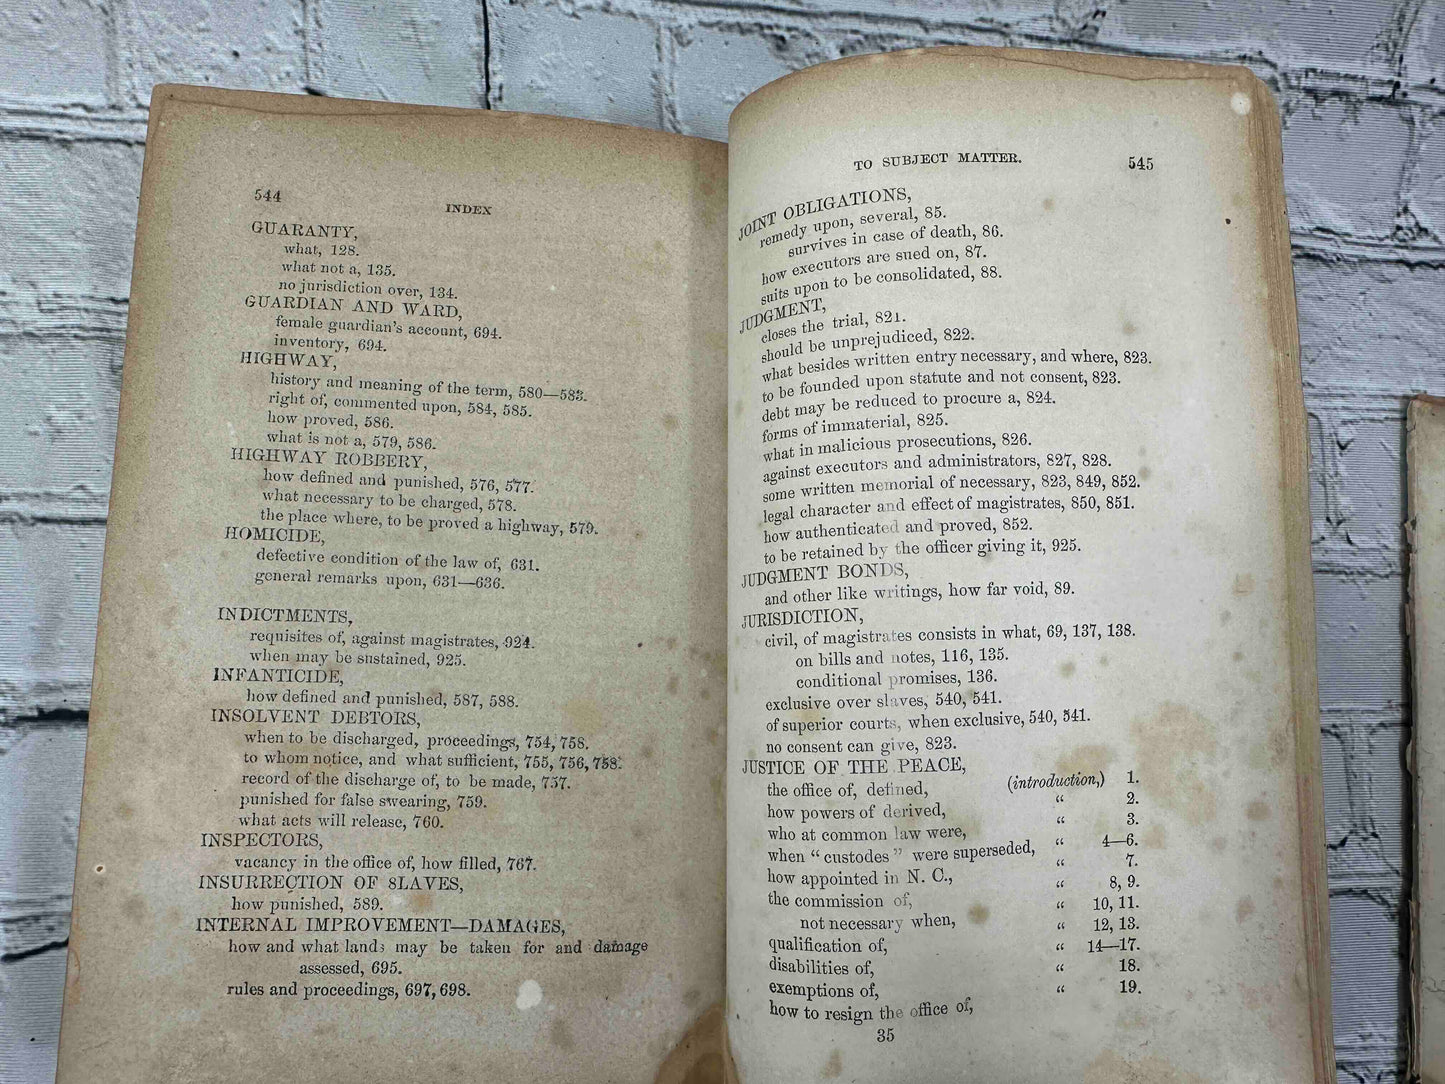 544
INDEX
GUARANTY,
what, 128.
what not a, 135.
no jurisdiction over, 134.
GUARDIAN AND WARD,
female guardian's account, 694.
inventory, 694.
HIGHWAY,
history and meaning of the term, 580—583.
right of, commented upon, 584, 585.
how proved, 586.
what is not a, 579, 586.
HIGHWAY ROBBERY,
how defined and punished, 576, 577.
what necessary to be charged, 578.
the place where, to be proved a highway, 579.
HOMICIDE,
defective condition of the law of, 631.
general remarks upon, 631—636.
INDICTMENTS,
requisites of, against magistrates, 924.
when may be sustained, 925.
INFANTICIDE,
how defined and punished, 587, 588.
INSOLVENT DEBTORS,
when to be discharged, proceedings, 754, 758.
to whom notice, and what sufficient, 755, 756, 758.
record of the discharge of, to be made, 757.
punished for false swearing, 759.
what acts will release, 760.
INSPECTORS,
vacancy in the office of, how filled, 767.
INSURRECTION OF SLAVES,
how punished, 589.
INTERNAL IMPROVEMENT—DAMAGES,
how and what lands may be taken for and damage
assessed, 695.
rules and proceedings, 697, 698.
TO SUBJECT MATTER.
545
JOINT OBLIGATIONS,
remedy upon, several, 85.
survives in case of death, 86.
how executors are sued on, 87.
suits upon to be consolidated, 88.
JUDGMENT,
closes the trial, 821.
should be unprejudiced, 822.
what besides written entry necessary, and where, 823.
to be founded upon statute and not consent, 823.
debt may be reduced to procure a, 824.
forms of immaterial, 825.
what in malicious prosecutions, 826.
against executors and administrators, 827, 828.
some written memorial of necessary, 823, 849, 852.
legal character and effect of magistrates, 850, 851.
how authenticated and proved, 852.
to be retained by the officer giving it, 925.
JUDGMENT BONDS,
and other like writings, how far void, 89.
JURISDICTION,
civil, of magistrates consists in what, 69, 137, 138.
on bills and notes, 116, 135.
conditional promises, 136.
exclusive over slaves, 540, 541.
of superior courts, when exclusive, 540, 541.
no consent can give, 823.
JUSTICE OF THE PEACE,
the office of, defined, (introduction,) 1.
how powers of derived, “ 2.
who at common law were, “ 3.
when “custodes” were superseded, “ 4—6.
how appointed in N. C., “ 7.
the commission of, “ 8, 9.
not necessary when, “ 10, 11.
qualification of, “ 12, 13.
disabilities of, “ 14—17.
exemptions of, “ 18.
how to resign the office of, “ 19.
35